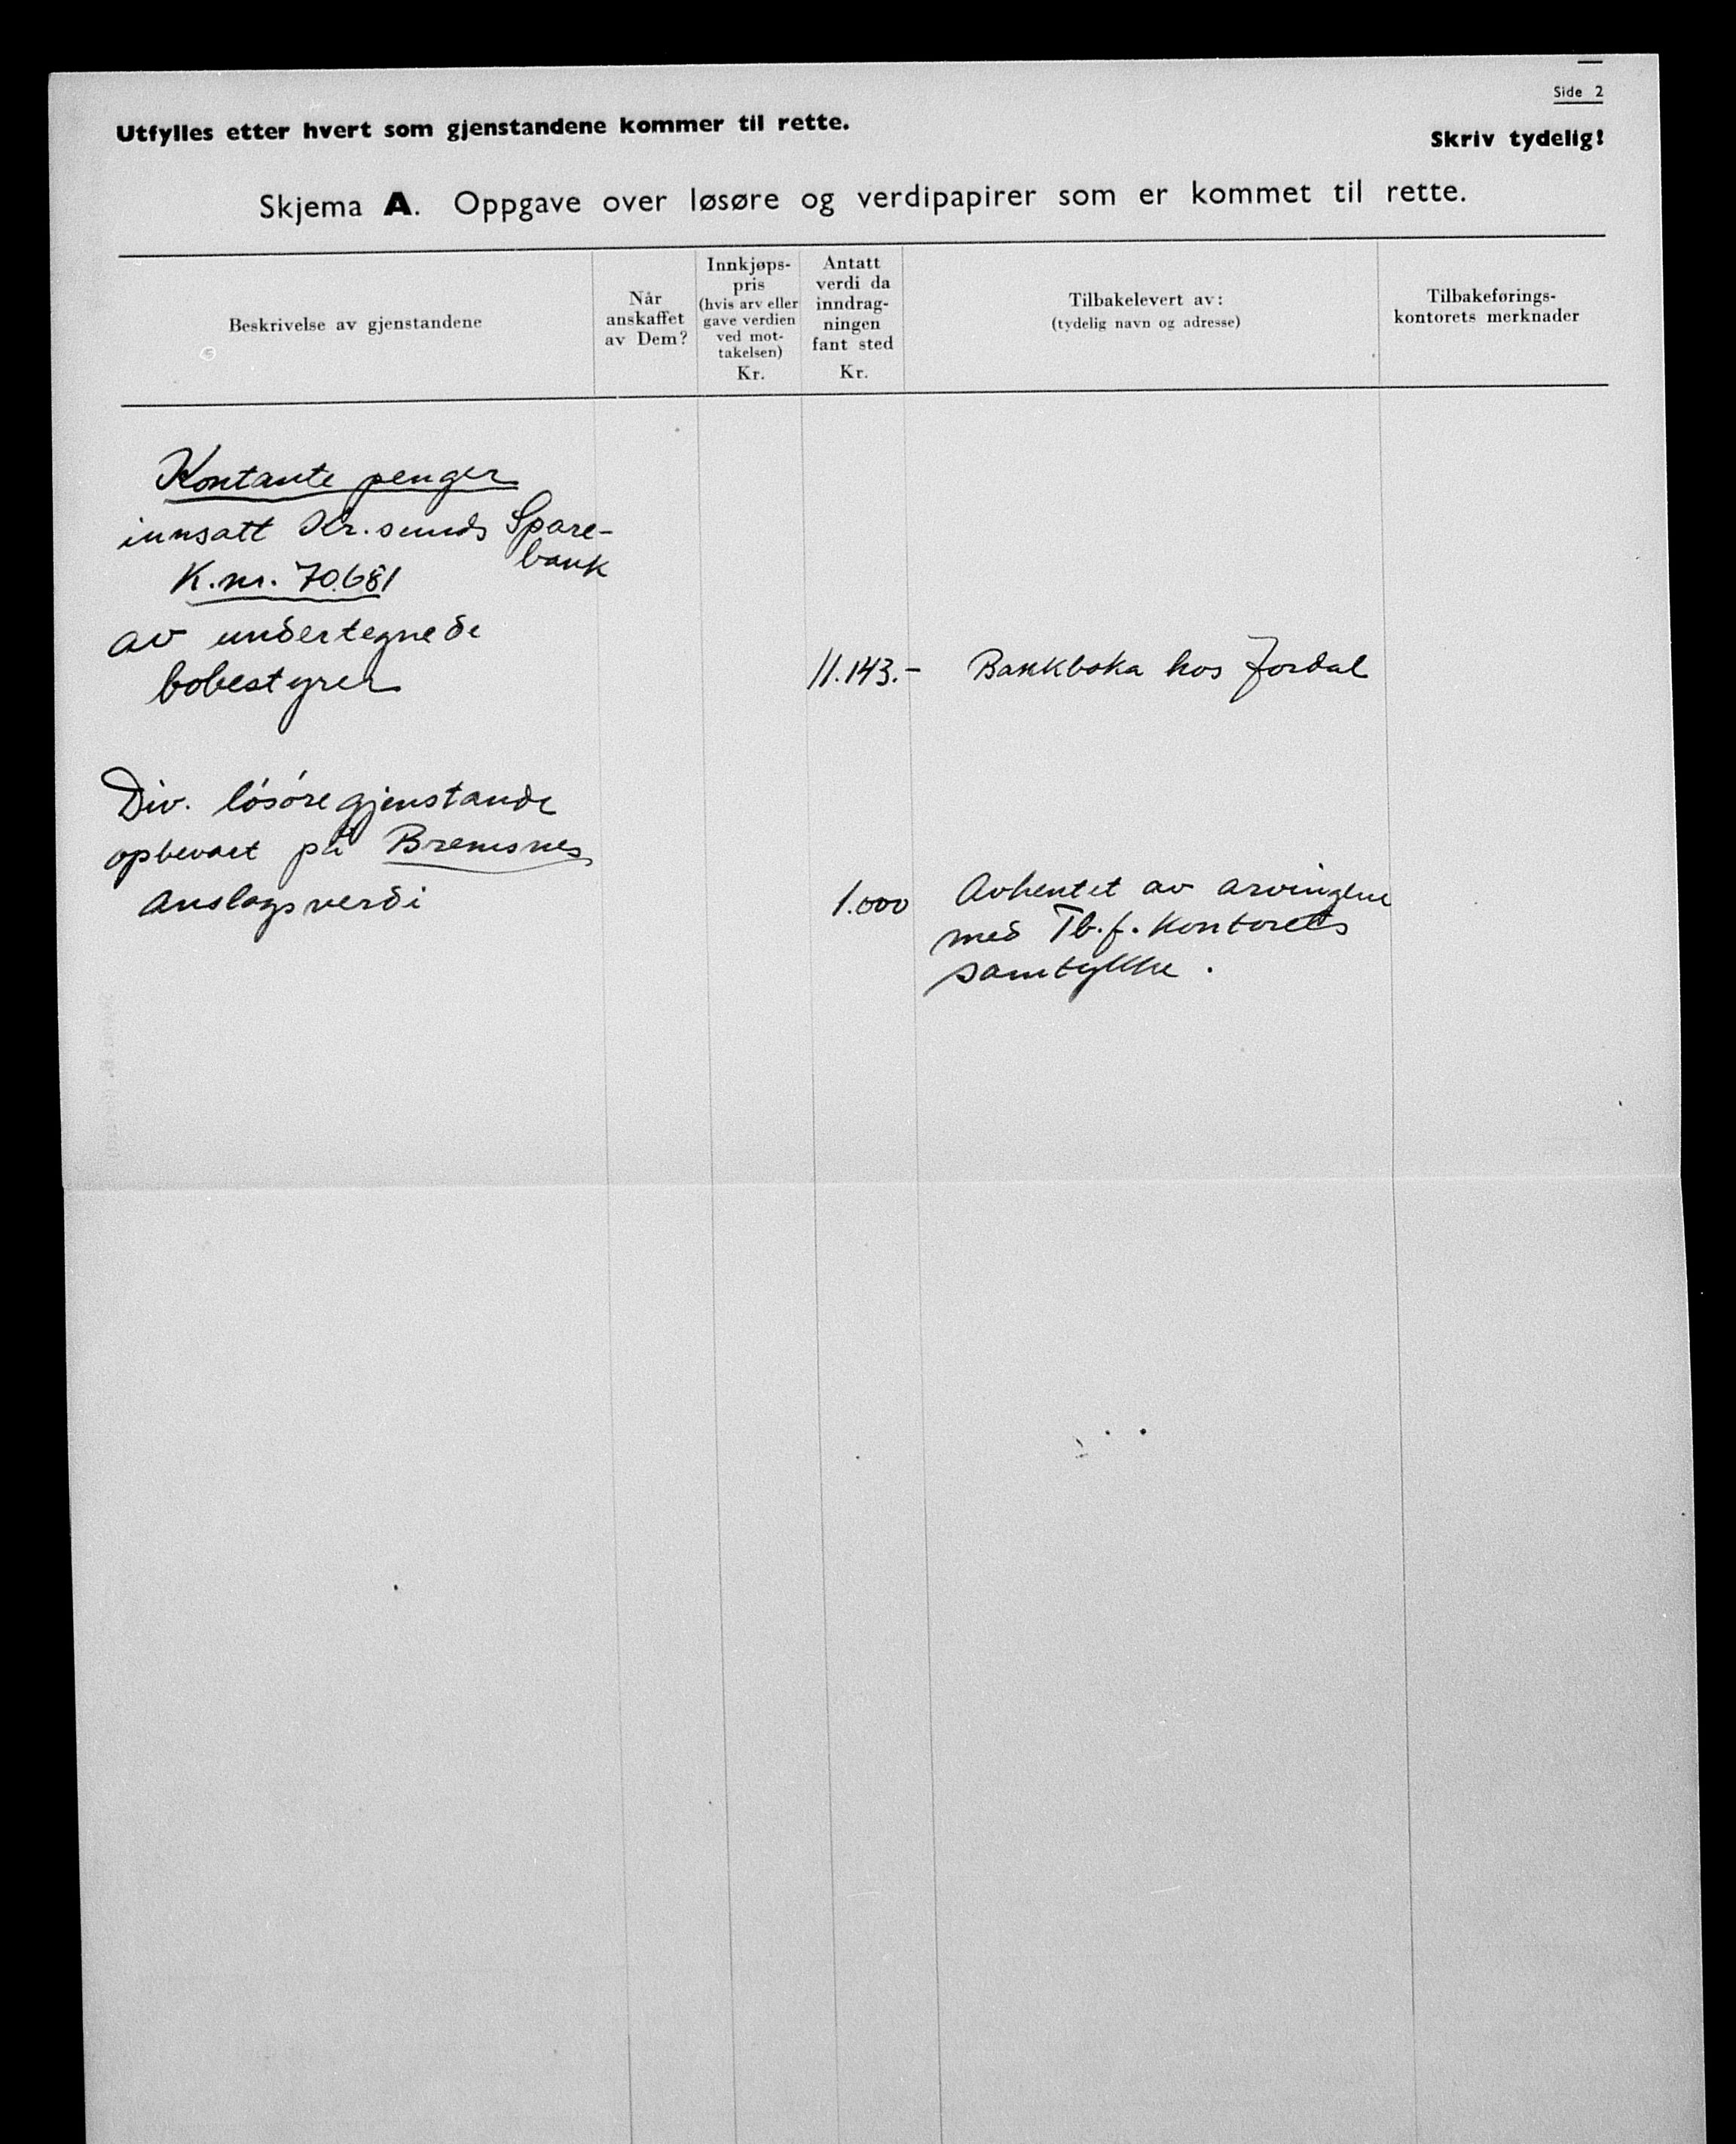 Side 2
Utfylles etter hvert som gjenstandene kommer til rette.
Skriv tydelig!
Skjema A. Oppgave over løsøre og verdipapirer som er kommet til rette.
Beskrivelse av gjenstandene
Når
anskaffet
av Dem?
Innkjøps-
pris
(hvis arv eller
gave verdien
ved mot-
takelsen)
Kr.
Antatt
verdi da
inndrag-
ningen
fant sted
Kr.
Tilbakelevert av:
(tydelig navn og adresse)
Tilbakeførings-
kontorets merknader
Kontante penger
innsatt Kr.sunds Spare-
bank
K.nr. 70681
av undertegnede
bobestyrer
11.143.- Bankboka hos Jordal
Div. løsøregjenstande
opbevart på Bremsnes
Anslagsverdi
1.000 Avhentet av arvingene
med Tb.f. kontorets
samtykke.